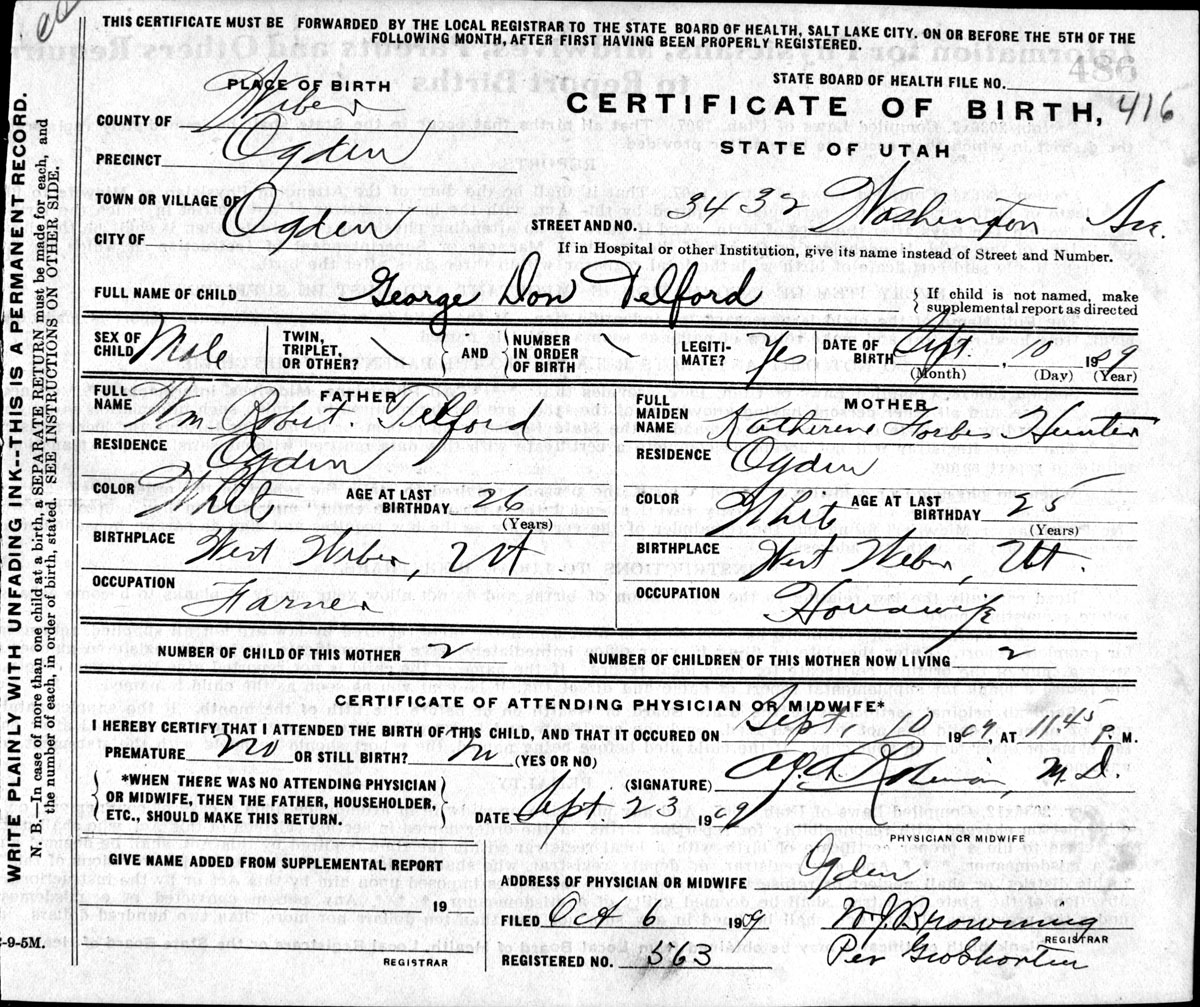 THIS CERTIFICATE MUST BE FORWARDED BY THE LOCAL REGISTRAR TO THE STATE BOARD OF HEALTH, SALT LAKE CITY, ON OR BEFORE THE 5TH OF THE
FOLLOWING MONTH, AFTER FIRST HAVING BEEN PROPERLY REGISTERED.
WRITE PLAINLY WITH UNFADING INK--THIS IS A PERMANENT RECORD.
N. B.—In case of more than one child at a birth, a SEPARATE RETURN must be made for each, and
the number of each, in order of birth, stated. SEE INSTRUCTIONS ON OTHER SIDE.
PLACE OF BIRTH
STATE BOARD OF HEALTH FILE NO.
COUNTY OF Weber
CERTIFICATE OF BIRTH, 416
PRECINCT Ogden
STATE OF UTAH
TOWN OR VILLAGE OF
CITY OF Ogden
STREET AND NO. 3432 Washington Ave.
If in Hospital or other Institution, give its name instead of Street and Number.
FULL NAME OF CHILD George Don Telford
If child is not named, make
supplemental report as directed
SEX OF CHILD Male
TWIN, TRIPLET, OR OTHER?
AND
NUMBER IN ORDER OF BIRTH
LEGITI- MATE? Yes
DATE OF BIRTH Sept. 10 1909
(Month) (Day) (Year)
FATHER
FULL NAME Wm Telford
MOTHER
FULL MAIDEN NAME Katherine Forbes Hunter
RESIDENCE Ogden
RESIDENCE Ogden
COLOR White AGE AT LAST BIRTHDAY 26 (Years)
COLOR White AGE AT LAST BIRTHDAY 25 (Years)
BIRTHPLACE West Weber, Ut
BIRTHPLACE West Weber, Ut.
OCCUPATION Farmer
OCCUPATION Housewife
NUMBER OF CHILD OF THIS MOTHER 2
NUMBER OF CHILDREN OF THIS MOTHER NOW LIVING 2
CERTIFICATE OF ATTENDING PHYSICIAN OR MIDWIFE*
I HEREBY CERTIFY THAT I ATTENDED THE BIRTH OF THIS CHILD, AND THAT IT OCCURED ON Sept. 10 1909, AT 1145 P. M.
PREMATURE no OR STILL BIRTH? no (YES OR NO)
*WHEN THERE WAS NO ATTENDING PHYSICIAN
OR MIDWIFE, THEN THE FATHER, HOUSEHOLDER,
ETC., SHOULD MAKE THIS RETURN.
(SIGNATURE) M.D.
DATE Sept. 23 1909
PHYSICIAN OR MIDWIFE
GIVE NAME ADDED FROM SUPPLEMENTAL REPORT
19
REGISTRAR
ADDRESS OF PHYSICIAN OR MIDWIFE Ogden
FILED Oct 6 1909 W J Browning
REGISTRAR
REGISTERED NO. 363 Per
-9-5M.